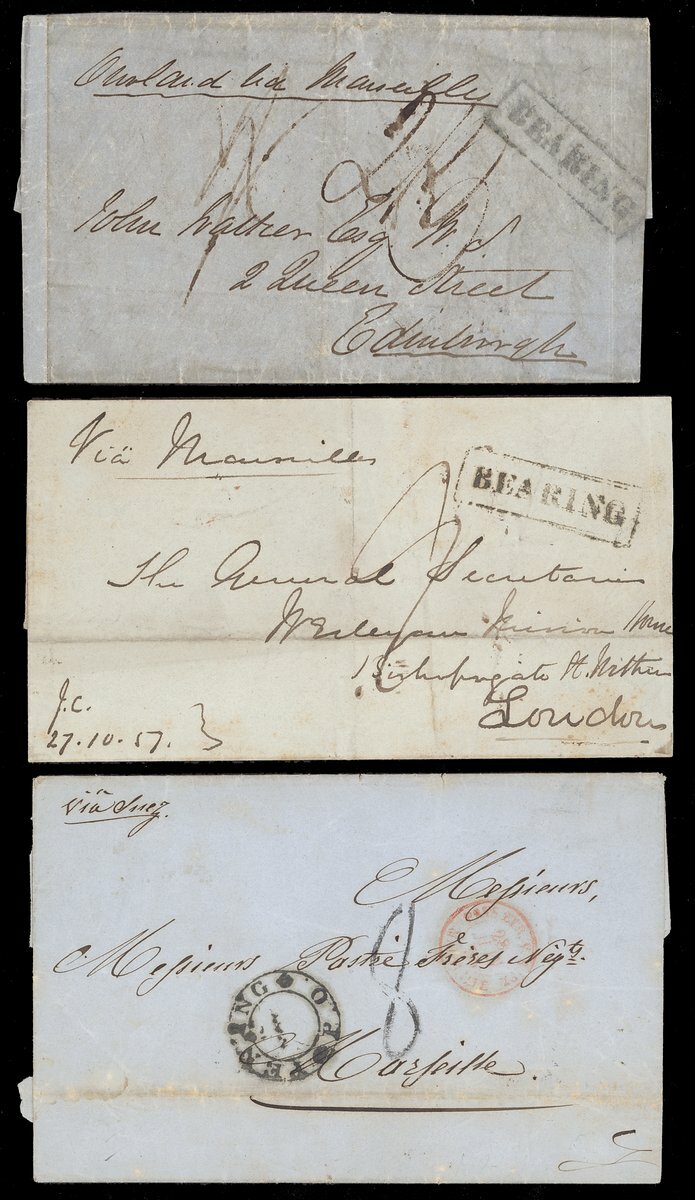 Overland via Marseilles
BEARING
2/3
John Walker Esq W.S
2 Queen Street
Edinburgh
Viä Marseilles
BEARING
The General Secretaries
Wesleyan Mission House
Bishopsgate St. Within
London
J.C.
27.10.57.
viä Suez.
Messieurs,
Messieurs Pastré Frères Negts.
8
BEARING
P.O.
Marseille.